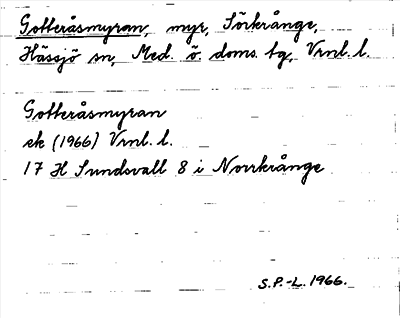 Gotteråsmyran, myr, Sörkrånge,
Hässjö sn, Med. ö. doms. tg, Vrnl. l.
Gotteråsmyran
ek (1966) Vrnl. l.
17 H Sundsvall 8 i Norrkrånge
S.P.-L. 1966.